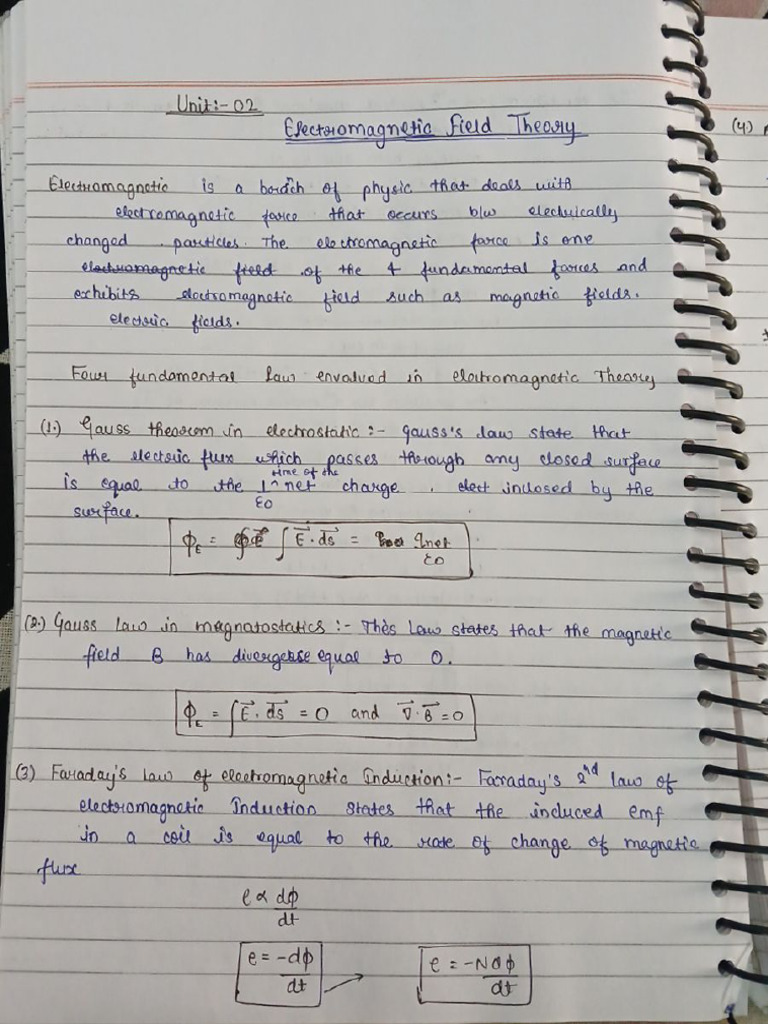 Unit:- 02
Electromagnetic Field Theory
(4)
Electromagnetic is a branch of physic that deals with
electromagnetic force that occurs b/w electrically
changed particles. The electromagnetic force is one
electromagnetic field of the 4 fundamental forces and
exhibits electromagnetic field such as magnetic fields.
electric fields.
Four fundamental Law envalued in electromagnetic Theory
(1.) Gauss theorem in electrostatic :- gauss's law state that
the electric flux which passes through any closed surface
time of the
is equal to the 1/ε0 net charge . elect inclosed by the
surface.
ϕE = ∫ E⃗ . ds⃗ = qnet/ε0
(2.) Gauss Law in magnatostatics :- This Law states that the magnetic
field B has divergense equal to 0.
ϕE = ∫ E⃗ . ds⃗ = 0 and ∇⃗ . B⃗ = 0
(3) Faraday's Law of electromagnetic Induction :- Faraday's 2nd law of
electromagnetic Induction states that the induced emf
in a coil is equal to the rate of change of magnetic
flux
e ∝ dϕ/dt
e = -dϕ/dt → e = -N dϕ/dt